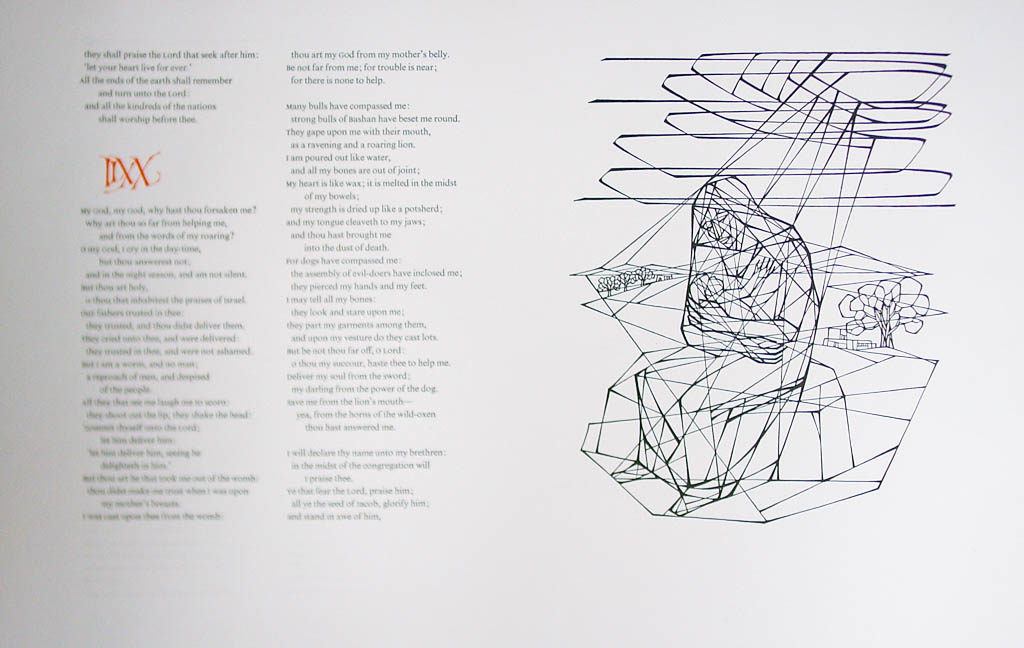 they shall praise the Lord that seek after him:
'let your heart live for ever.'
All the ends of the earth shall remember
and turn unto the Lord:
and all the kindreds of the nations
shall worship before thee.
IIXX
My God, my God, why hast thou forsaken me?
why art thou so far from helping me,
and from the words of my roaring?
O my God, I cry in the day-time,
but thou answerest not;
and in the night season, and am not silent.
But thou art holy,
o thou that inhabitest the praises of Israel.
Our fathers trusted in thee:
they trusted, and thou didst deliver them.
They cried unto thee, and were delivered:
they trusted in thee, and were not ashamed.
But I am a worm, and no man;
a reproach of men, and despised
of the people.
All they that see me laugh me to scorn:
they shoot out the lip, they shake the head:
'commit thyself unto the Lord;
let him deliver him:
'let him deliver him, seeing he
delighteth in him.'
But thou art he that took me out of the womb:
thou didst make me trust when I was upon
my mother's breasts.
I was cast upon thee from the womb:
thou art my God from my mother's belly.
Be not far from me; for trouble is near;
for there is none to help.
Many bulls have compassed me:
strong bulls of Bashan have beset me round.
They gape upon me with their mouth,
as a ravening and a roaring lion.
I am poured out like water,
and all my bones are out of joint;
My heart is like wax; it is melted in the midst
of my bowels;
my strength is dried up like a potsherd;
and my tongue cleaveth to my jaws;
and thou hast brought me
into the dust of death.
For dogs have compassed me:
the assembly of evil-doers have inclosed me;
they pierced my hands and my feet.
I may tell all my bones:
they look and stare upon me;
They part my garments among them,
and upon my vesture do they cast lots.
But be not thou far off, O Lord:
O thou my succour, haste thee to help me.
Deliver my soul from the sword;
my darling from the power of the dog.
Save me from the lion's mouth—
yea, from the horns of the wild-oxen
thou hast answered me.
I will declare thy name unto my brethren:
in the midst of the congregation will
I praise thee.
Ye that fear the Lord, praise him;
all ye the seed of Jacob, glorify him;
and stand in awe of him,